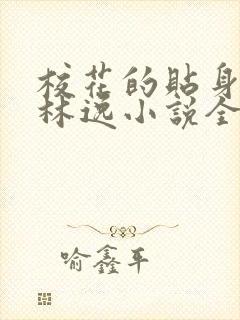 校花的貼身
林逸小說全
喻鑫平